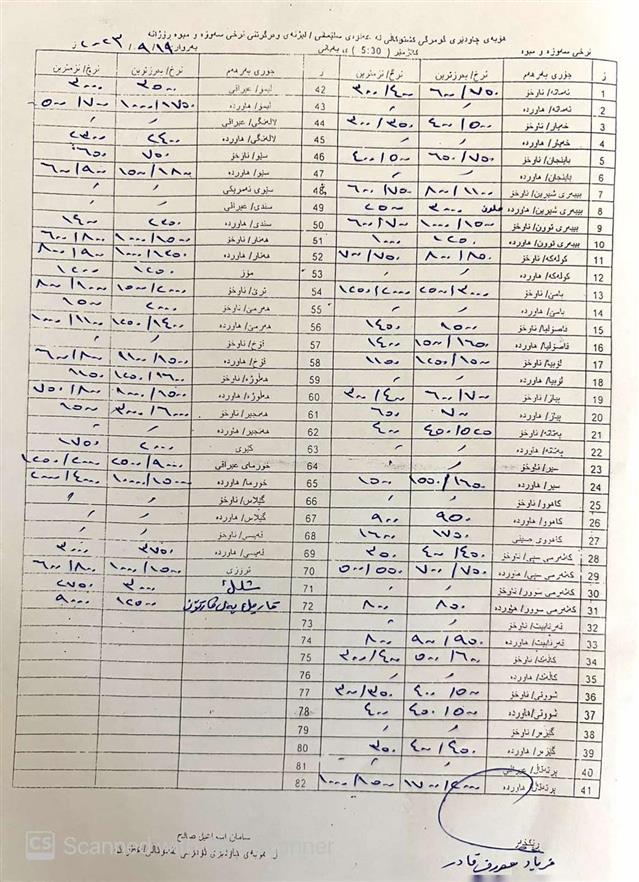 نرخی سەوزە و میوە
کاتژمێر ( 5:30 ) ی بەیانی
بەروار ٢٠٢٣/٩/١٩ ز
ز جۆری بەرهەم نرخ/ بەرزترین نرخ/ نزمترین ز جۆری بەرهەم نرخ/ بەرزترین نرخ/ نزمترین
1 تەماتە/ ناوخۆ ٧٥٠/٦٠٠ ٤٠٠/٣٠٠ 42 لیمۆ/ عیراقی ٣٥٠٠ ٣٠٠٠
2 تەماتە/ هاوردە 43 لیمۆ/ هاوردە ١٧٥٠/١٠٠٠ ٧٠٠/٥٠٠
3 خەیار/ ناوخۆ ٥٠٠/٤٠٠ ٣٥٠/٣٠٠ 44 لالەنگی/ عیراقی
4 خەیار/ هاوردە 45 لالەنگی/ هاوردە ٢٤٠٠ ٢٣٠٠
5 باینجان/ ناوخۆ ٧٥٠/٦٥٠ ٥٠٠/٤٠٠ 46 سێو/ ناوخۆ ٧٥٠ ٦٥٠
6 باینجان/ هاوردە 47 سێو/ هاوردە ١٨٠٠/١٥٠٠ ٩٠٠/٦٠٠
7 بیبەری شیرین/ ناوخۆ ١١٠٠/٨٠٠ ٧٥٠/٦٠٠ 48 سێوی ئەمریکی
8 بیبەری شیرین/ هاوردە ٣٠٠٠ ٢٥٠٠ 49 سندی/ عیراقی
9 بیبەری توون/ ناوخۆ ١٥٠٠/١٠٠٠ ٧٠٠/٦٠٠ 50 سندی/ هاوردە ١٤٠٠
10 بیبەری توون/ هاوردە ١٢٥٠ ١٠٠٠ 51 هەنار/ ناوخۆ ١٥٠٠/١٠٠٠ ٨٠٠/٦٠٠
11 کولەکە/ ناوخۆ ٨٥٠/٨٠٠ ٧٥٠/٧٠٠ 52 هەنار/ هاوردە ١٢٥٠/١٠٠٠ ٩٠٠/٨٠٠
12 کولەکە/ هاوردە 53 مۆز ١٢٥٠ ١٢٠٠
13 بامێ/ ناوخۆ ٣٠٠٠/٢٥٠٠ ٢٠٠٠/١٢٥٠ 54 ترێ/ ناوخۆ ٢٠٠٠/١٥٠٠ ١٠٠٠/٨٠٠
14 بامێ/ هاوردە 55 هەرمێ/ ناوخۆ ٢٠٠٠ ١٥٠٠
15 فاصۆلیا/ ناوخۆ ١٥٠٠ ١٤٥٠ 56 هەرمێ/ هاوردە ١٤٠٠/١٢٥٠ ١١٠٠/١٠٠٠
16 فاصۆلیا/ هاوردە ١٦٥٠/١٥٠٠ ١٤٠٠ 57 قۆخ/ ناوخۆ
17 لۆبیا/ ناوخۆ ١٥٠٠/١٢٥٠ ١١٥٠ 58 قۆخ/ هاوردە ١٥٠٠/١١٠٠ ٨٠٠/٦٠٠
18 لۆبیا/ هاوردە 59 هەلوژە/ ناوخۆ
19 پیاز/ ناوخۆ ٧٠٠/٦٠٠ ٤٠٠/٣٠٠ 60 هەلوژە/ هاوردە ٨٠٠/٧٥٠
20 پیاز/ هاوردە ٧٠٠ ٦٥٠ 61 هەنجیر/ ناوخۆ ٦٠٠٠/٣٠٠٠ ١٥٠٠
21 پەتاتە/ ناوخۆ ٥٢٥/٤٥٠ ٤٠٠ 62 هەنجیر/ هاوردە
22 پەتاتە/ هاوردە 63 کیوی ٢٠٠٠ ١٧٥٠
23 سیر/ ناوخۆ 64 خورمای عیراقی ٩٠٠٠/٢٥٠٠ ٢٠٠٠/١٢٥٠
24 سیر/ هاوردە ١٦٥٠/١٥٥٠ ١٥٠٠ 65 خورما/ هاوردە ٤٠٠٠/٢٠٠٠
25 کاهوو/ ناوخۆ 66 گێلاس/ ناوخۆ
26 کاهوو/ هاوردە ٩٥٠ ٩٠٠ 67 گێلاس/ هاوردە
27 کاهووی صینی ١٧٥٠ ١٦٠٠ 68 قەیسی/ ناوخۆ
28 کەلەرمی سپی/ ناوخۆ ٤٥٠/٤٠٠ ٣٥٠ 69 قەیسی/ هاوردە ٣٧٥٠ ٣٠٠٠
29 کەلەرمی سپی/ هاوردە ٧٥٠/٧٠٠ ٥٥٠/٥٠٠ 70 تروزی ١٥٠٠/١٠٠٠ ٨٠٠/٦٠٠
30 کەلەرمی سوور/ ناوخۆ 71 ٣٠٠٠ ٢٧٥٠
31 کەلەرمی سوور/ هاوردە ٨٥٠ ٨٠٠ 72 ١٢٥٠٠ ٩٠٠٠
32 قەرنابیت/ ناوخۆ 73
33 قەرنابیت/ هاوردە ٩٥٠/٩٠٠ ٨٠٠ 74
34 کالەک/ ناوخۆ ٦٠٠/٥٠٠ ٤٠٠/٣٠٠ 75
35 کالەک/ هاوردە 76
36 شووتی/ ناوخۆ ٥٠٠/٤٠٠ ٣٥٠/٣٠٠ 77
37 شووتی/ هاوردە ٥٠٠/٤٥٠ ٤٠٠ 78
38 گێزەر/ ناوخۆ 79
39 گێزەر/ هاوردە ٤٥٠/٤٠٠ ٣٥٠ 80
40 پرتەقاڵ/ عیراقی 81
41 پرتەقاڵ/ هاوردە ٢٠٠٠/١٧٠٠ ١٥٠٠/١٠٠٠ 82
فریاد عەرف قادر
سامان اسماعیل صالح
CS Scanned with CamScanner